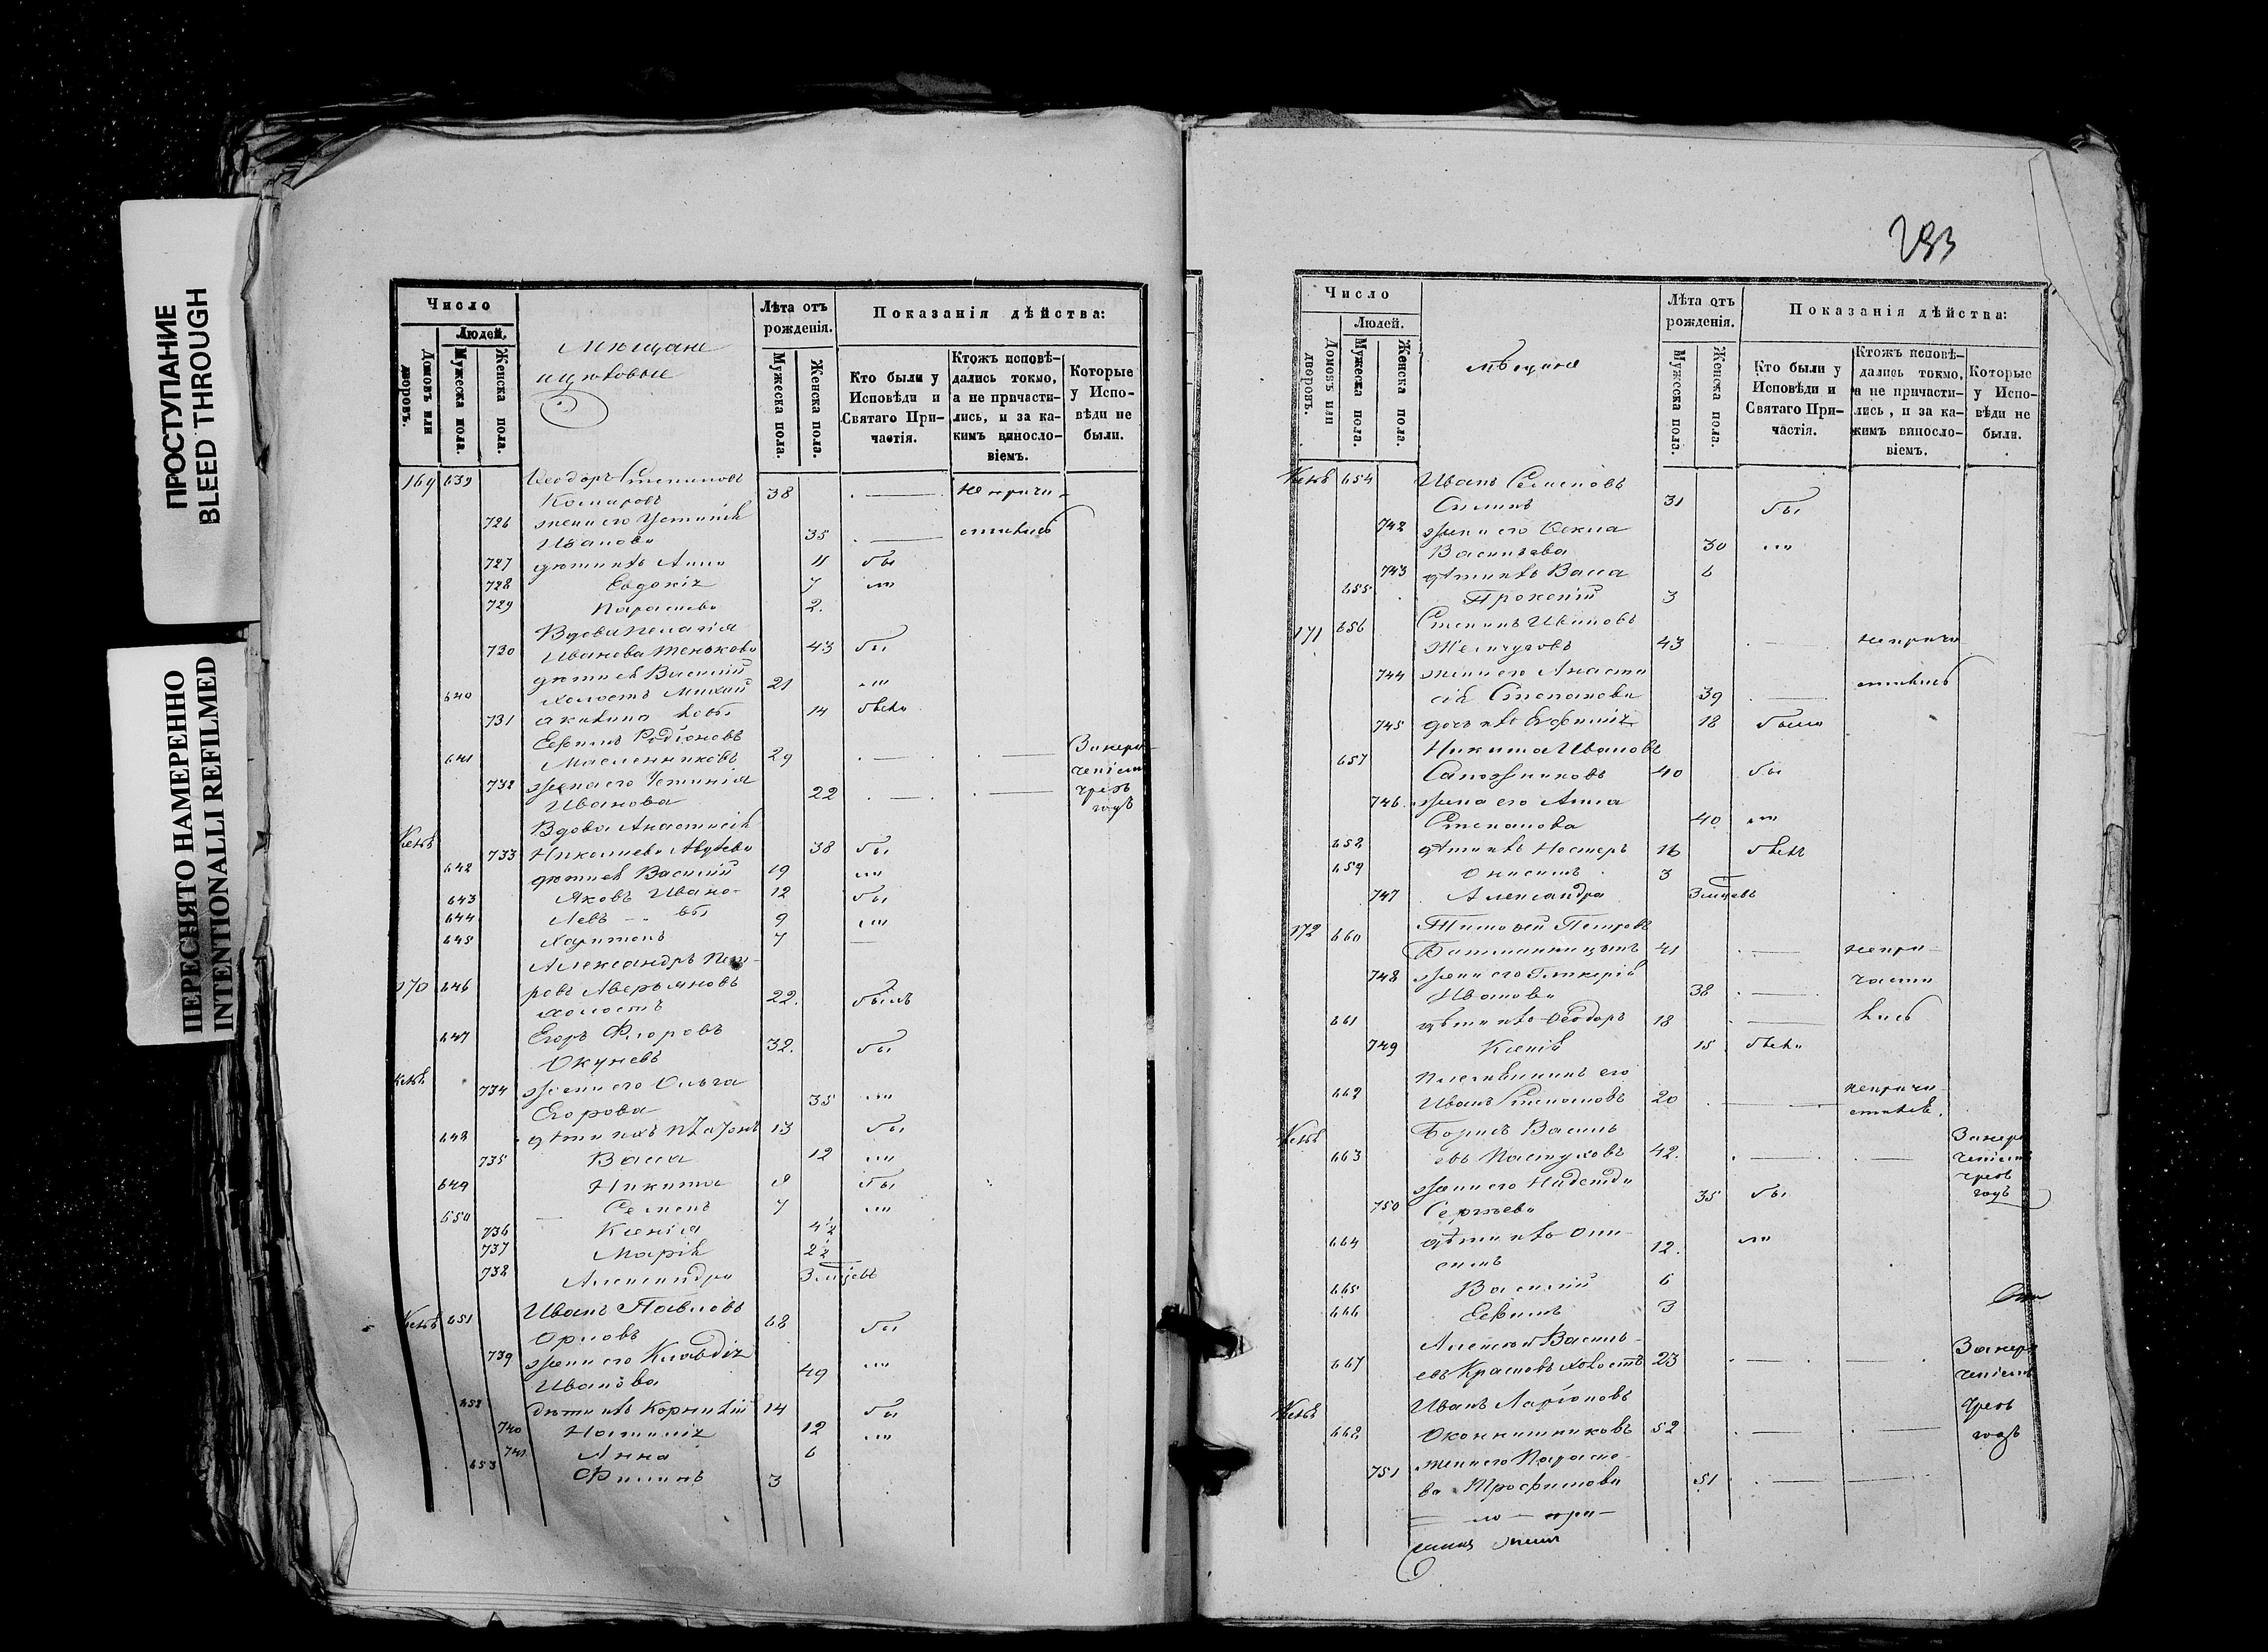 ПРОСТУПАНИЕ
BLEED THROUGH
ПЕРЕСНЯТО НАМЕРЕННО
INTENTIONALLI REFILMED
Число
Людей.
Домовъ или дворовъ.
Мужеска пола.
Женска пола.
Мѣщане
цеховые
Лѣта отъ рожденія.
Мужеска пола.
Женска пола.
Показанія дѣйства:
Кто были у Исповѣди и Святаго Причастія.
Ктожъ исповѣдались токмо, а не причастились, и за какимъ винословіемъ.
Которые у Исповѣди не были.
169 639 Ѳеодоръ Степановъ
Комаровъ 38 не причи-
726 жена его Устинія стились
Иванова 35
727 дѣти ихъ Анна 11 бы
728 Евдокія 7 ли
729 Параскева 2
Вдова Пелагія
730 Иванова 43 бы
дѣти ея Василий
640 холостъ 21 ли
731 Акилина 14 была
Ефимъ Родіоновъ
641 Масленниковъ 29 За нера-
732 жена его Устинія ченіем
Иванова 22 чрезъ годъ
Вдова Анастасія
733 Николаева 38 бы
642 дѣти ея Василий 19 ли
643 Яковъ Ивано- 12 бы
644 Левъ вы 9 ли
645 Харитонъ 7
Александръ Пет-
170 646 ровъ Аверьяновъ
холостъ 22 былъ
647 Егоръ Флоровъ
Окуневъ 32 бы
734 жена его Ольга
Егорова 35 ли
648 дѣти ихъ Платонъ 13 бы
735 Васса 12 ли
649 Никита 9 бы
650 Семенъ 7 ли
736 Ксенія 4½
737 Марія 2½
738 Александра 3 мѣсяцевъ
651 Иванъ Павловъ
Орловъ 68 бы
739 жена его Клавдія
Иванова 49 ли
652 дѣти ихъ Корнилій 14 бы
740 Наталія 12 ли
741 Анна 6
653 Филипъ 3
Число
Людей.
Домовъ или дворовъ.
Мужеска пола.
Женска пола.
мѣщане
Лѣта отъ рожденія.
Мужеска пола.
Женска пола.
Показанія дѣйства:
Кто были у Исповѣди и Святаго Причастія.
Ктожъ исповѣдались токмо, а не причастились, и за какимъ винословіемъ.
Которые у Исповѣди не были.
654 Иванъ Семеновъ
Силинъ 31 бы
742 жена его Ѳекла
Васильева 30 ли
743 дѣти ихъ Васса 6
655 Прокопій 3
171 656 Степанъ Ивановъ
Жемчуговъ 43 не причи
744 жена его Анаста стились
сія Степанова 39
745 дочь ихъ Евфимія 18 была
657 Никита Ивановъ
Сапожниковъ 40 бы
746 жена его Анна
Степанова 40 ли
658 дѣти ихъ Несторъ 16 былъ
659 Онисимъ 3
747 Александра 3 мѣсяцевъ
172 660 Тимоѳей Петровъ
41 непри-
748 жена его Гликерія части
Иванова 38 лись
661 дѣти ихъ Ѳеодоръ 18
749 Ксенія 15 была
Племянникъ его
662 Иванъ Степановъ 20 непричи-
стился.
Борисъ Василь
663 евъ Пастуховъ 42 За нера
ченіемъ
чрезъ
годъ
жена его Надежда
750 Сергѣева 35 бы
664 дѣти ихъ Они-
симъ 12 ли
665 Василій 6
666 Ефимъ 3
Алексѣй Василь-
667 евъ Красновъ холостъ 23 За нера
ченіемъ
чрезъ
годъ
Иванъ Ларіоновъ
668 Оконишниковъ 52
жена его Параске-
751 ва Трофимова 51